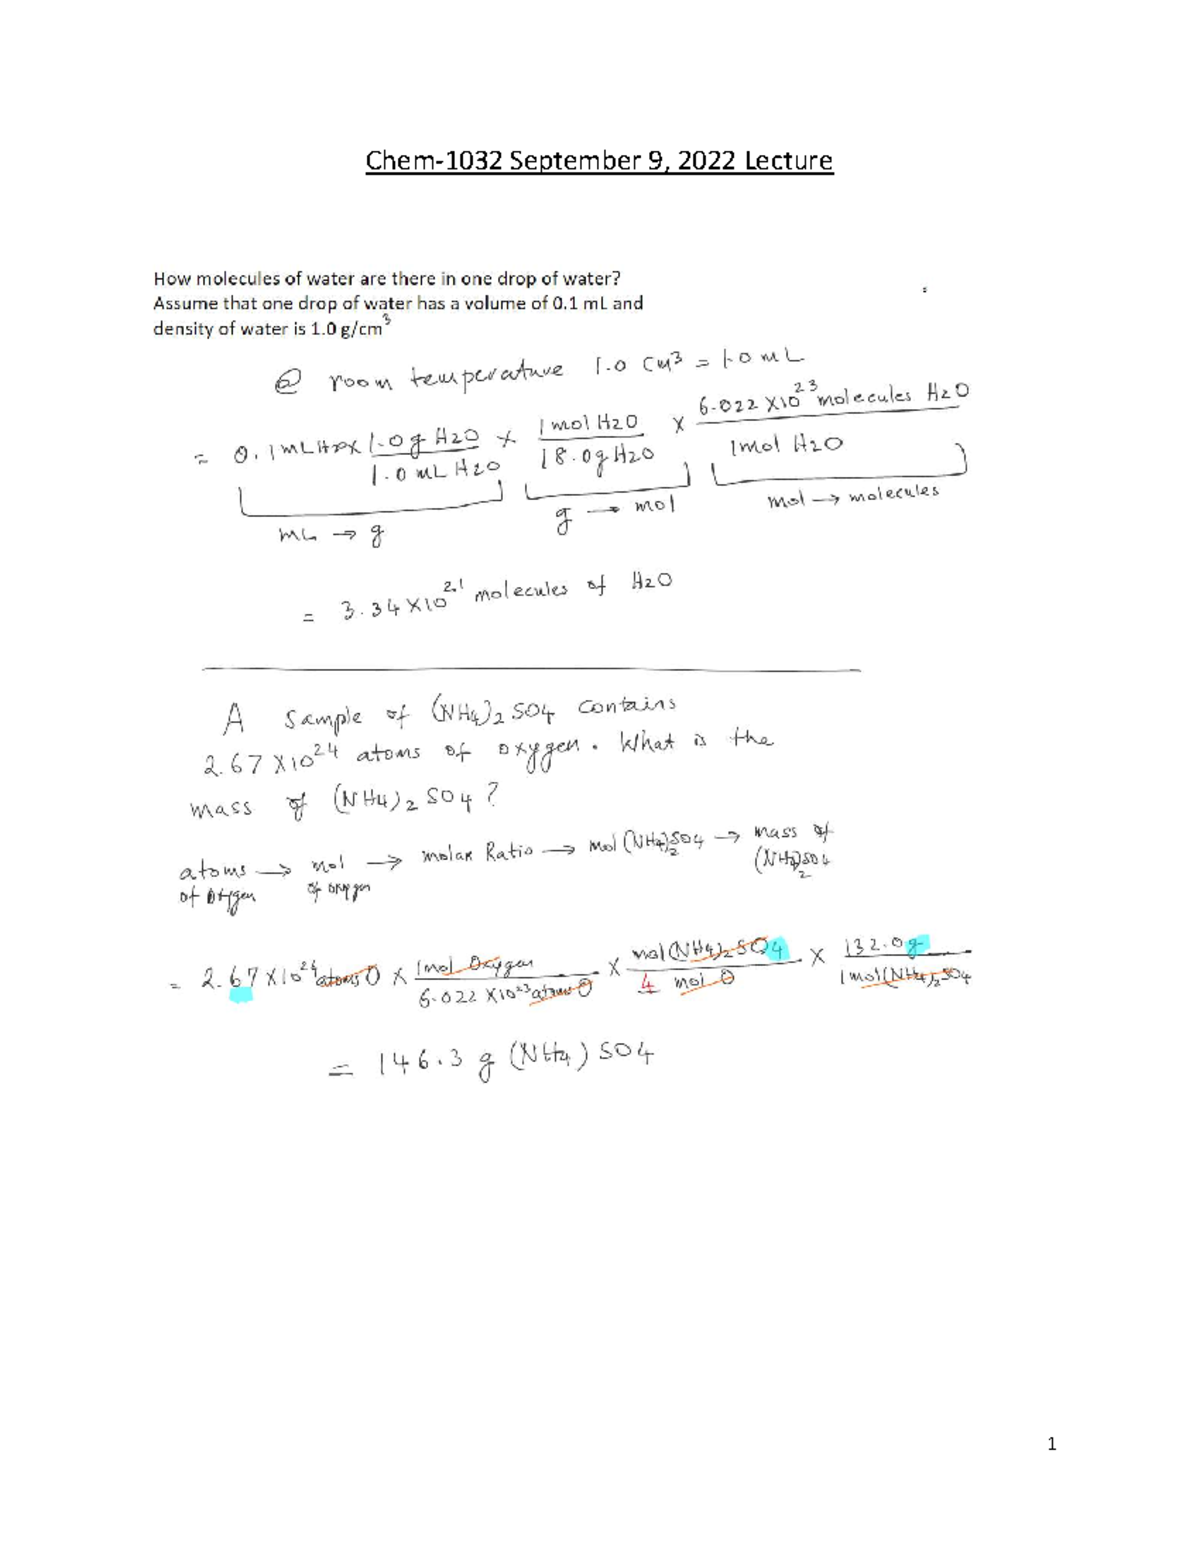 Chem-1032 September 9, 2022 Lecture
How molecules of water are there in one drop of water?
Assume that one drop of water has a volume of 0.1 mL and
density of water is 1.0 g/cm³
@ room temperature 1.0 cm³ = 1.0 mL
= 0.1mL H2O × 1.0 g H2O / 1.0 mL H2O × 1 mol H2O / 18.0g H2O × 6.022 ×10²³ molecules H2O / 1mol H2O
mL → g g → mol mol → molecules
= 3.34 ×10²¹ molecules of H2O
A sample of (NH4)2 SO4 contains
2.67 ×10²⁴ atoms of oxygen. What is the
mass of (NH4)2 SO4?
atoms → mol → molar Ratio → mol (NH4)2SO4 → mass of
of oxygen of oxygen (NH4)2SO4
= 2.67 ×10²⁴ atoms O × 1mol Oxygen / 6.022 ×10²³ atoms O × mol (NH4)2 SO4 / 4 mol O × 132.0g / 1mol (NH4)2 SO4
= 146.3 g (NH4) SO4
1